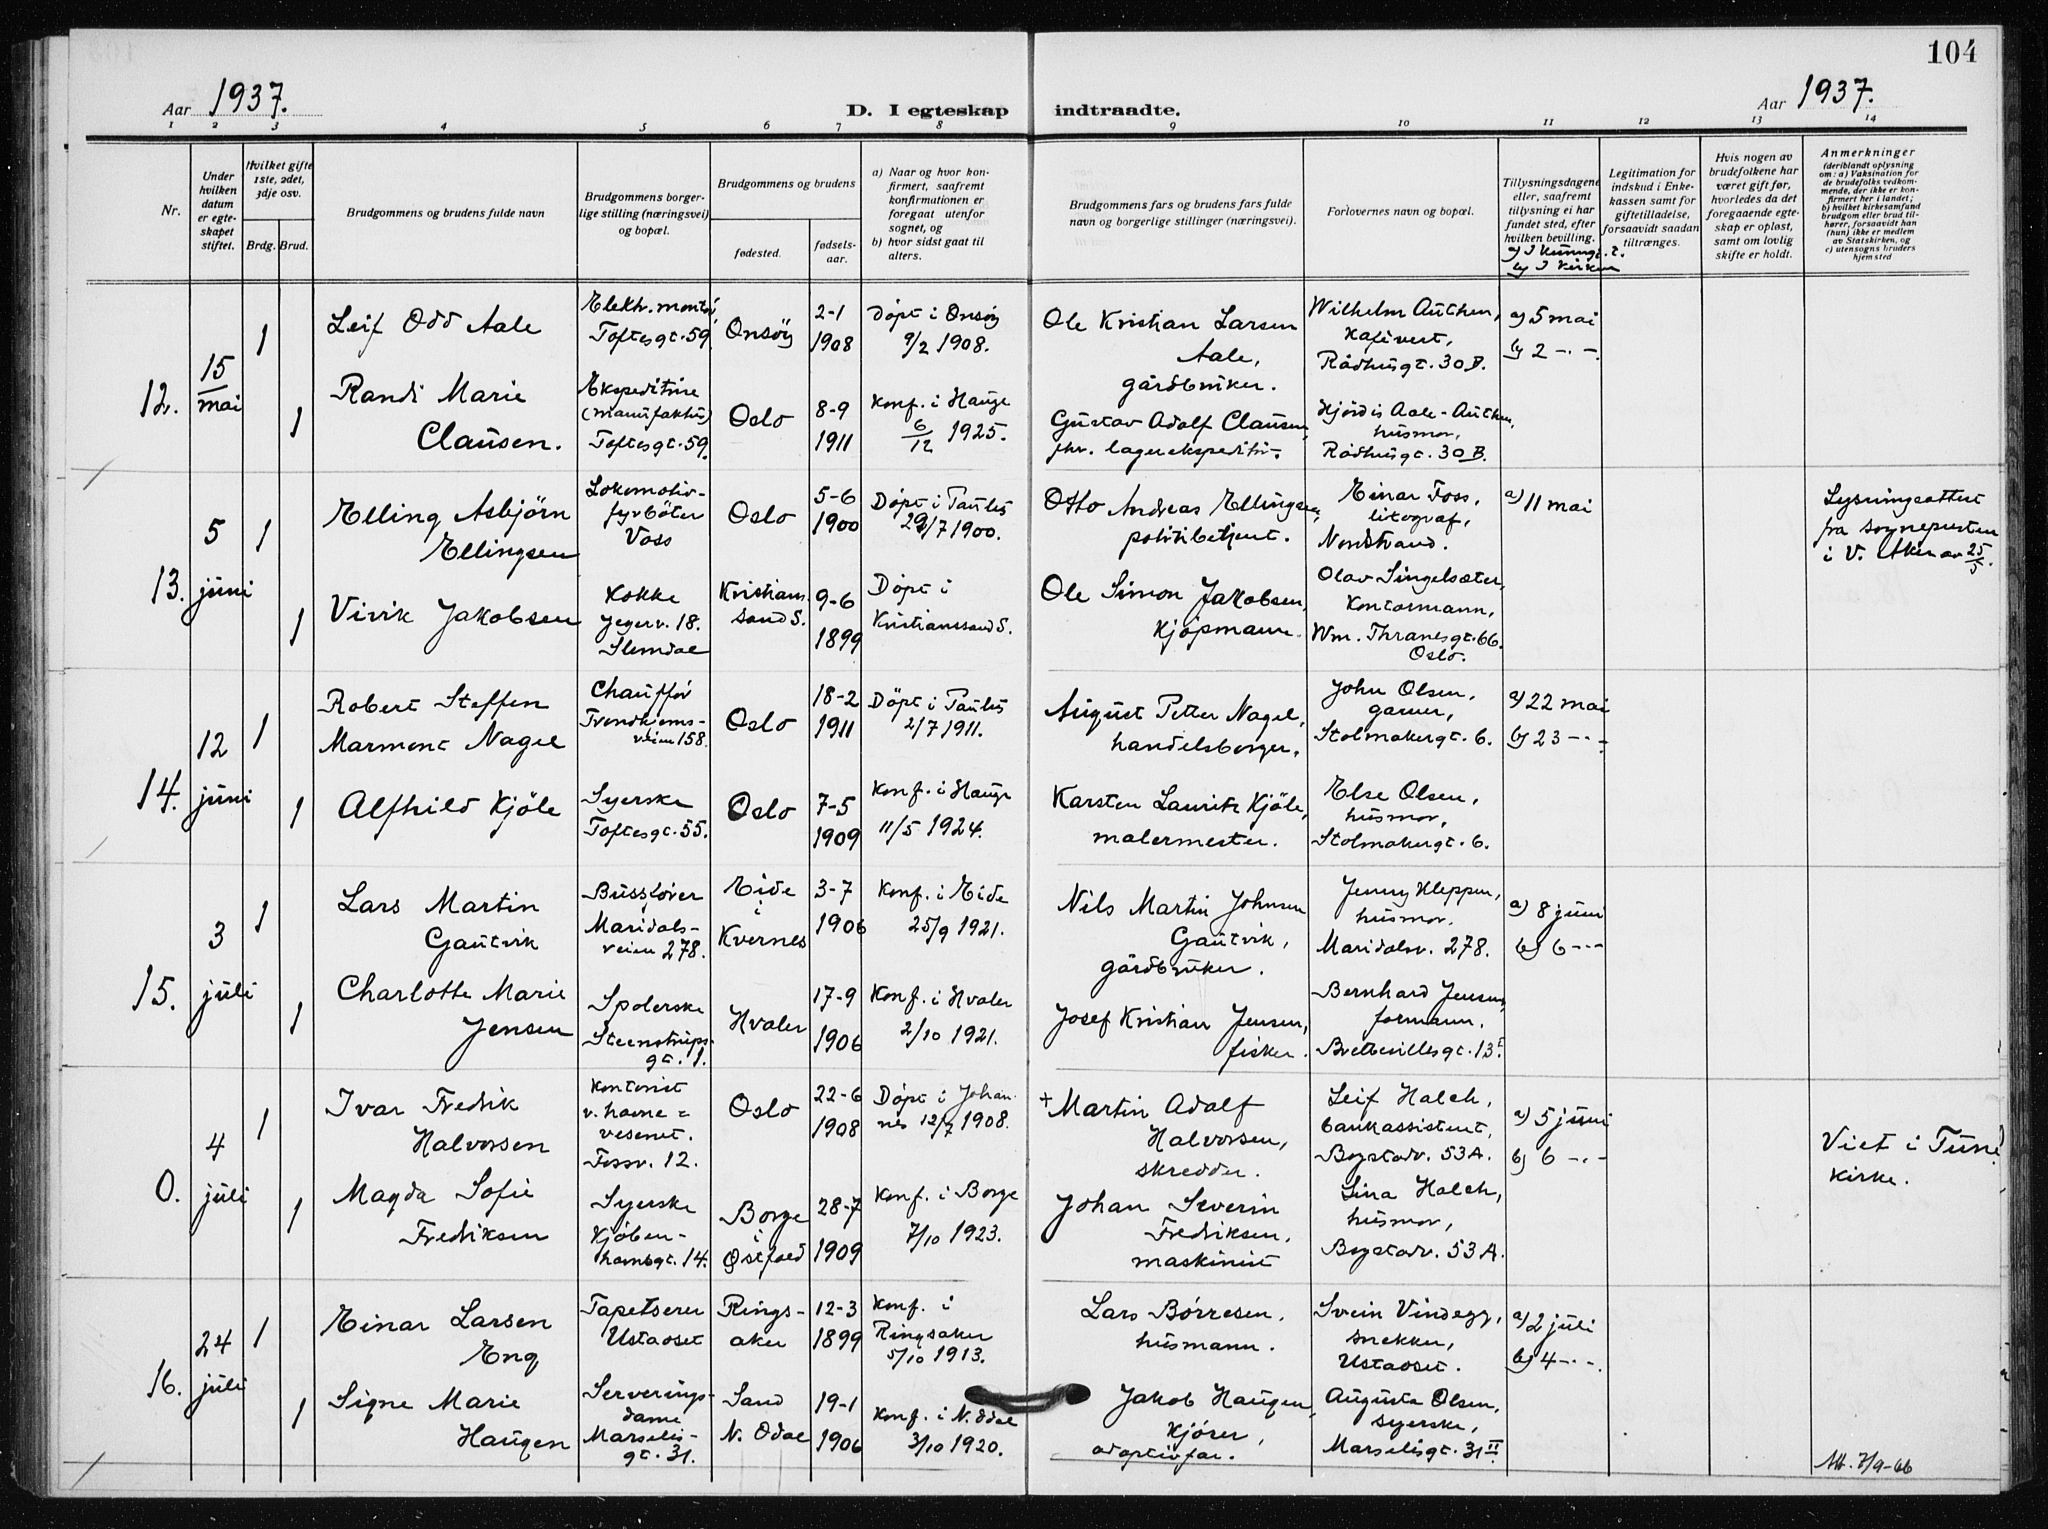 104
Aar 1937.
D. I egteskap indtraadte.
Aar 1937.
1 2 3 4 5 6 7 8 9 10 11 12 13 14
Nr.
Under hvilken datum er egteskapet stiftet.
Hvilket gifte 1ste, 2det, 3dje osv.
Brdg. Brud.
Brudgommens og brudens fulde navn
Brudgommens borgerlige stilling (næringsvei) og bopæl.
Brudgommens og brudens
fødested.
fødselsaar.
a) Naar og hvor konfirmert, saafremt konfirmationen er foregaat utenfor sognet, og
b) hvor sidst gaat til alters.
Brudgommens fars og brudens fars fulde navn og borgerlige stillinger (næringsvei).
Forlovernes navn og bopæl.
Tillysningsdagene eller, saafremt tillysning ei har fundet sted, efter hvilken bevilling.
b) I kirken
Legitimation for indskud i Enkekassen samt for giftetilladelse, forsaavidt saadan tiltrænges.
Hvis nogen av brudefolkene har været gift før, hvorledes da det foregaaende egteskap er opløst, samt om lovlig skifte er holdt.
Anmerkninger
(deriblandt oplysning om: a) Vaksination for de brudefolks vedkommende, der ikke er konfirmert her i landet; b) hvilket kirkesamfund brudgom eller brud tilhører, forsaavidt han (hun) ikke er medlem av Statskirken, og c) utensogns bruders hjemsted
12.
15/mai
1
Leif Odd Aale
Elektr. montør
Toftesgt. 59.
Onsøy
2-1
1908
Døpt i Onsøy
9/2 1908.
Ole Kristian Larsen
Aale,
gårdbruker.
Wilhelm Authen,
kafévert,
Rådhusgt. 30 B.
a) 5 mai
b) 2 -.-.
1
Randi Marie
Clausen.
Ekspeditrise
(manufaktur)
Toftesgt. 59.
Oslo
8-9
1911
Konf. i Hauge
6/12 1925.
Gustav Adolf Clausen,
fhv. lagerekspeditør.
Hjørdis Aale-Authen,
husmor,
Rådhusgt. 30 B.
13.
5 juni
1
Elling Asbjörn
Ellingsen
Lokomotiv-
fyrböter
Voss
Oslo
5-6
1900
Döpt i Paulus
29/7 1900.
Otto Andreas Ellingsen,
politibetjent.
Einar Foss,
litograf,
Nordstrand.
a) 11 mai
Lysningsattest
fra sognepresten
i V. Aker av 25/5.
1
Vivik Jakobsen
Kokke
Jegerv. 18.
Slemdal
Kristians
sand S.
9-6
1899
Døpt i
Kristianssand S.
Ole Simon Jakobsen,
kjøpmann.
Olav Singelsæter,
kontormann,
Wm. Thranesgt. 66.
Oslo.
14.
12 juni
1
Robert Steffen
Marmont Nagel
Chauffør
Trondhjems-
veien 158.
Oslo
18-2
1911
Døpt i Paulus
2/7 1911.
August Petter Nagel,
handelsborger.
John Olsen,
garver,
Stolmakergt. 6.
a) 22 mai
b) 23 -.-.
1
Alfhild Kjöle
Syerske
Toftesgt. 55.
Oslo
7-5
1909
Konf. i Hauge
11/5 1924.
Karsten Lauritz Kjöle,
malermester.
Else Olsen,
husmor,
Stolmakergt. 6.
15.
3 juli
1
Lars Martin
Gautvik
Busseier
Maridals-
veien 278.
Eide
i
Kvernes
3-7
1906
Konf. i Eide
25/9 1921.
Nils Martin Johnsen
Gautvik,
gårdbruker.
Jenny Kleppen,
husmor.
Maridalsv. 278.
a) 8 juni
b) 6 -.-
1
Charlotte Marie
Jensen
Spolerske
Steenstrups-
gt. 1.
Hvaler
17-9
1906
Konf. i Hvaler
2/10 1921.
Josef Kristian Jensen,
fisker.
Bernhard Jensen,
formann.
Brettevillesgt. 13 I.
0.
4 juli
1
Ivar Fredrik
Halvorsen
Kontorist
v. havne-
vesenet.
Fossv. 12.
Oslo
22-6
1908
Døpt i Johan-
nes 12/7 1908.
+Martin Adolf
Halvorsen,
skredder.
Leif Holch,
bankassistent,
Bogstadv. 53 A.
a) 5 juni
b) 6 -.-
Viet i Tune
kirke.
1
Magda Sofie
Fredriksen
Syerske
Kjøben-
havnsgt. 14.
Borge
i
Østfold
28-7
1909
Konf. i Borge
7/10 1923.
Johan Severin
Fredriksen,
maskinist
Lina Holch,
husmor,
Bogstadv. 53 A.
16.
24 juli
1
Einar Larsen
Eng
Tapetserer
Ustaoset
Rings-
aker
12-3
1899
Konf. i
Ringsaker
5/10 1913.
Lars Børresen,
husmann.
Svein Vindegg,
snekker,
Ustaoset.
a) 2 juli
b) 4 -.-.
1
Signe Marie
Haugen
Serverings-
dame
Marselis-
gt. 31.
Sand
N. Odal
19-1
1906
Konf. i N. Odal
3/10 1920.
Jakob Haugen,
kjører,
adoptivfar.
Augusta Olsen,
syerske,
Marselisgt. 31 II.
Att. 7/9-66